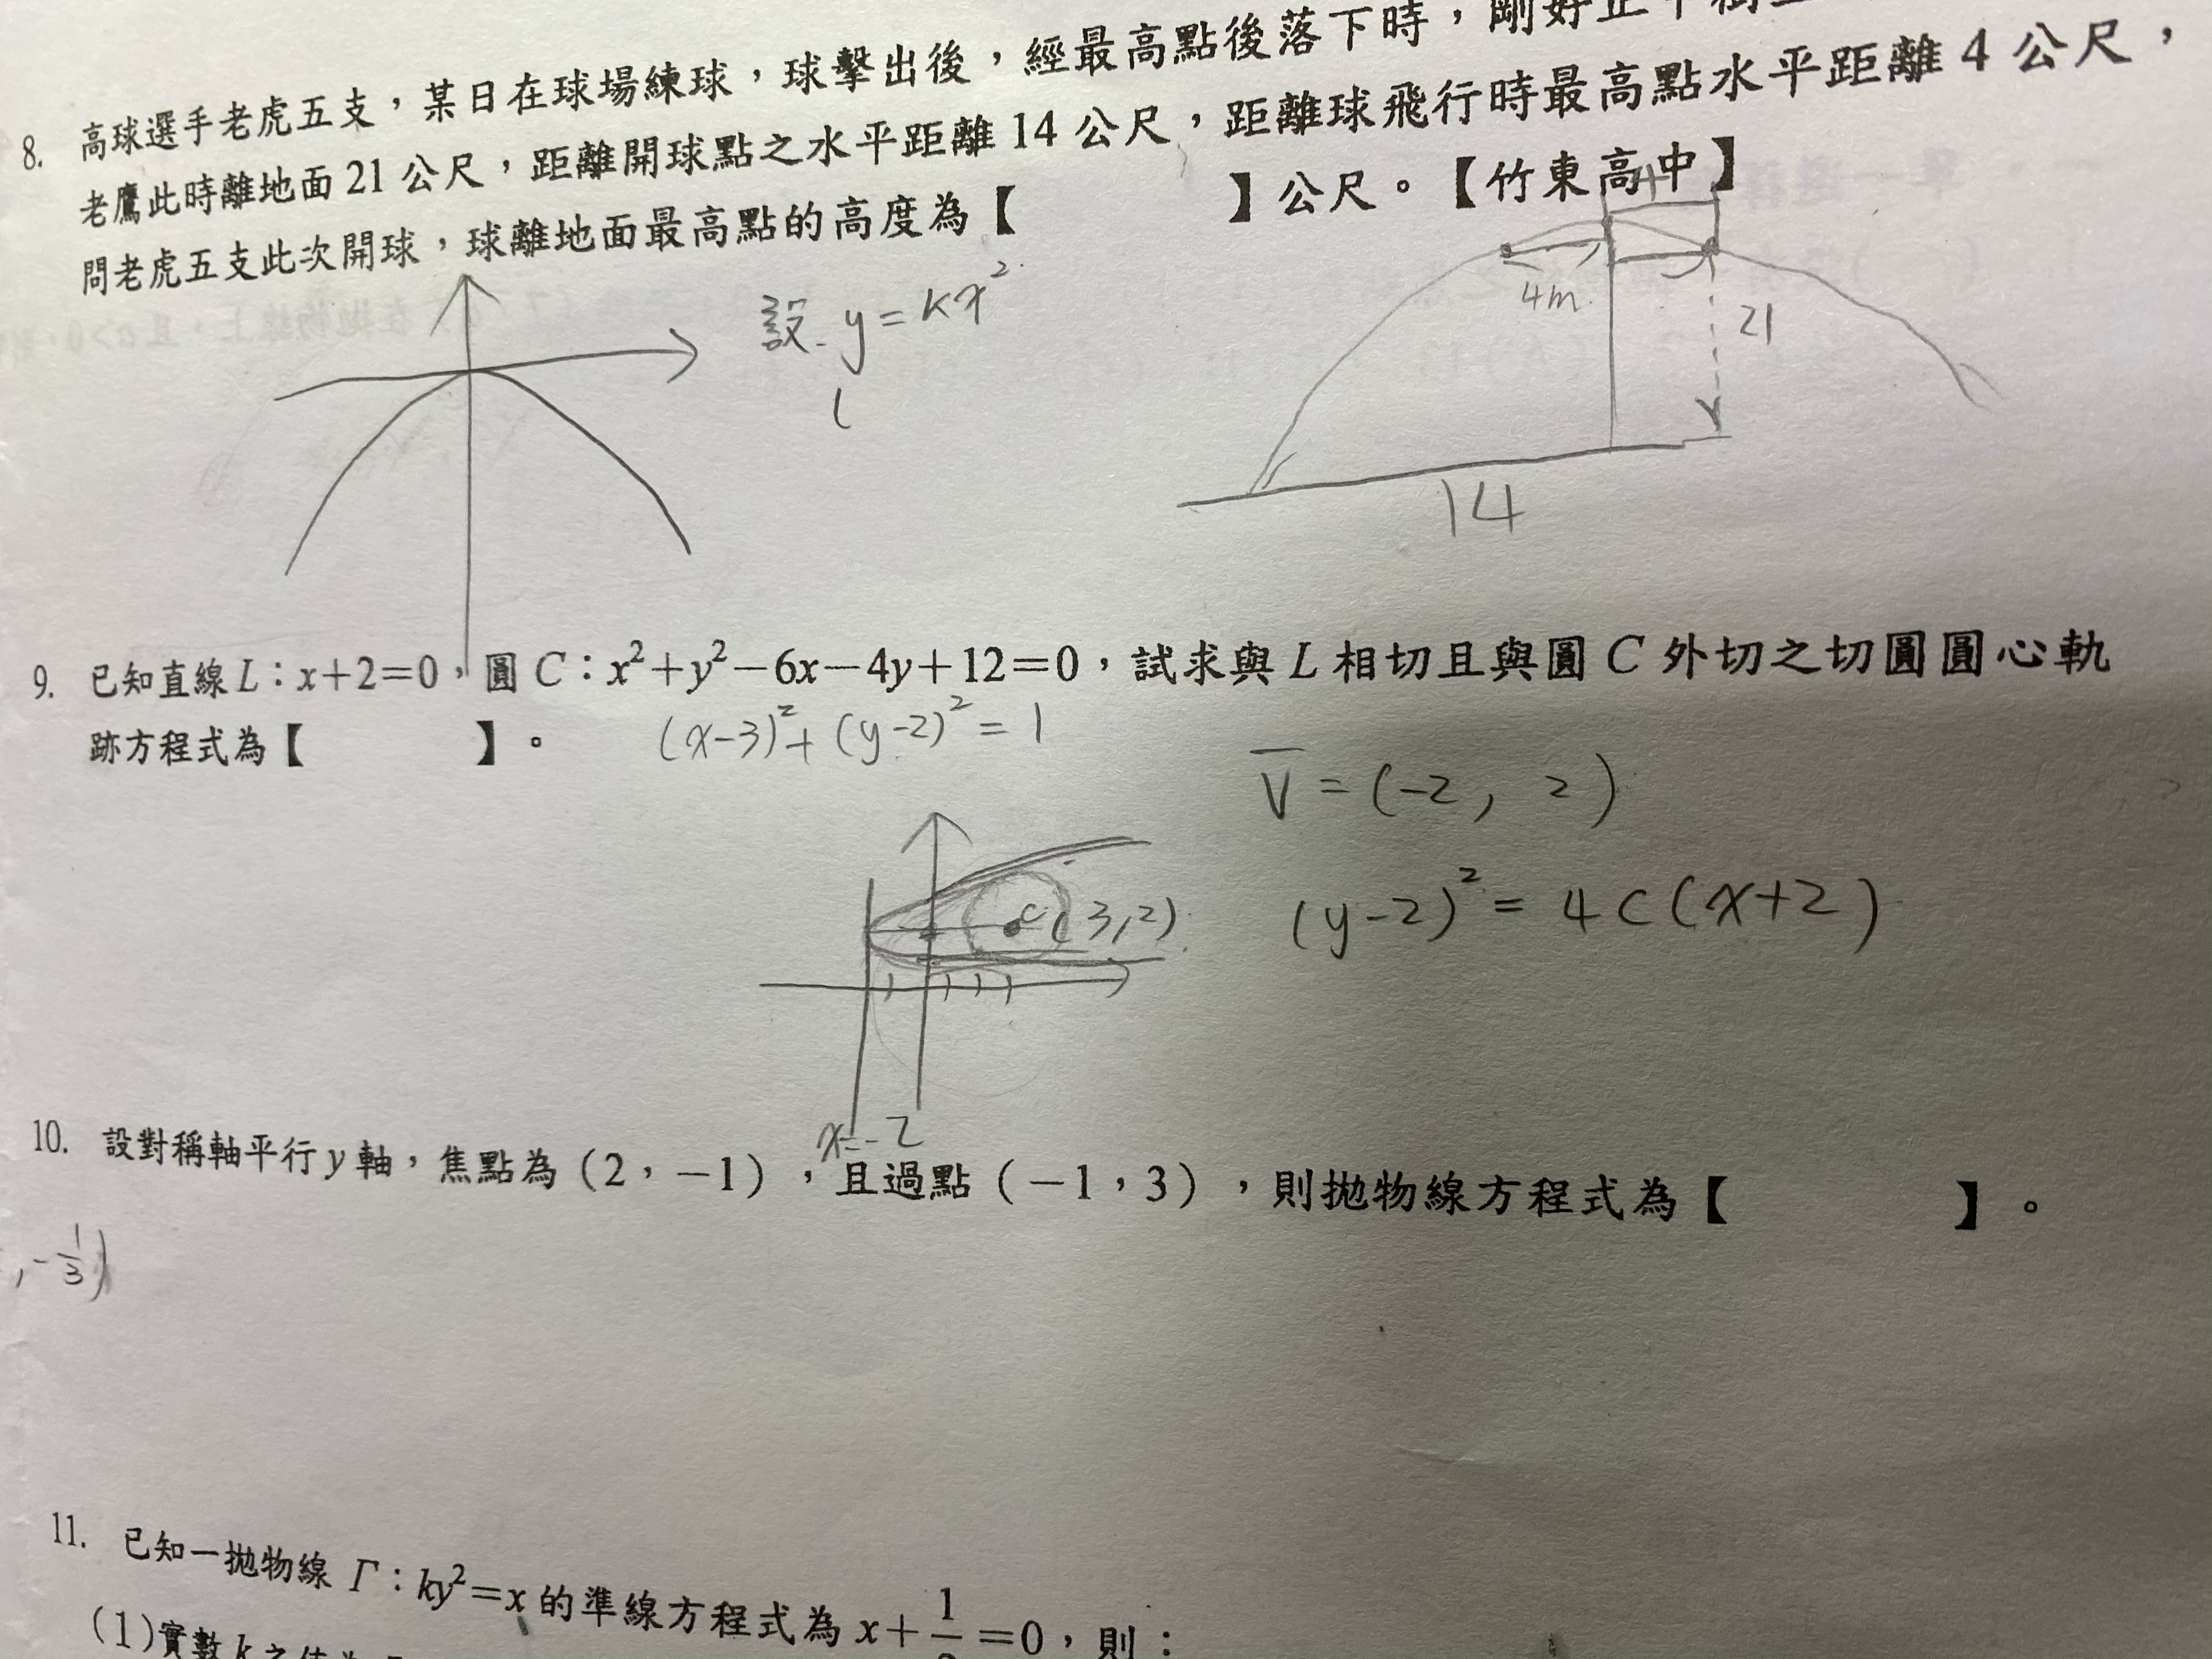 8. 高球選手老虎五支，某日在球場練球，球擊出後，經最高點後落下時，剛好
老鷹此時離地面21公尺，距離開球點之水平距離14公尺，距離球飛行時最高點水平距離4公尺，
問老虎五支此次開球，球離地面最高點的高度為【 】公尺。【竹東高中】
4
設 y=kx²
4m
21
14
9. 已知直線L：x+2=0，圓C：x²+y²−6x−4y+12=0，試求與L相切且與圓C外切之切圓圓心軌
跡方程式為【 】。
(x-3)²+(y-2)²=1
V=(-2, 2)
(y-2)²=4c(x+2)
C(3,2)
x=-2
10. 設對稱軸平行y軸，焦點為(2，−1)，且過點(−1，3)，則拋物線方程式為【 】。
,-1/3)
11. 已知一拋物線Γ：ky²=x的準線方程式為x+1/ =0，則：
(1)實數k之值為